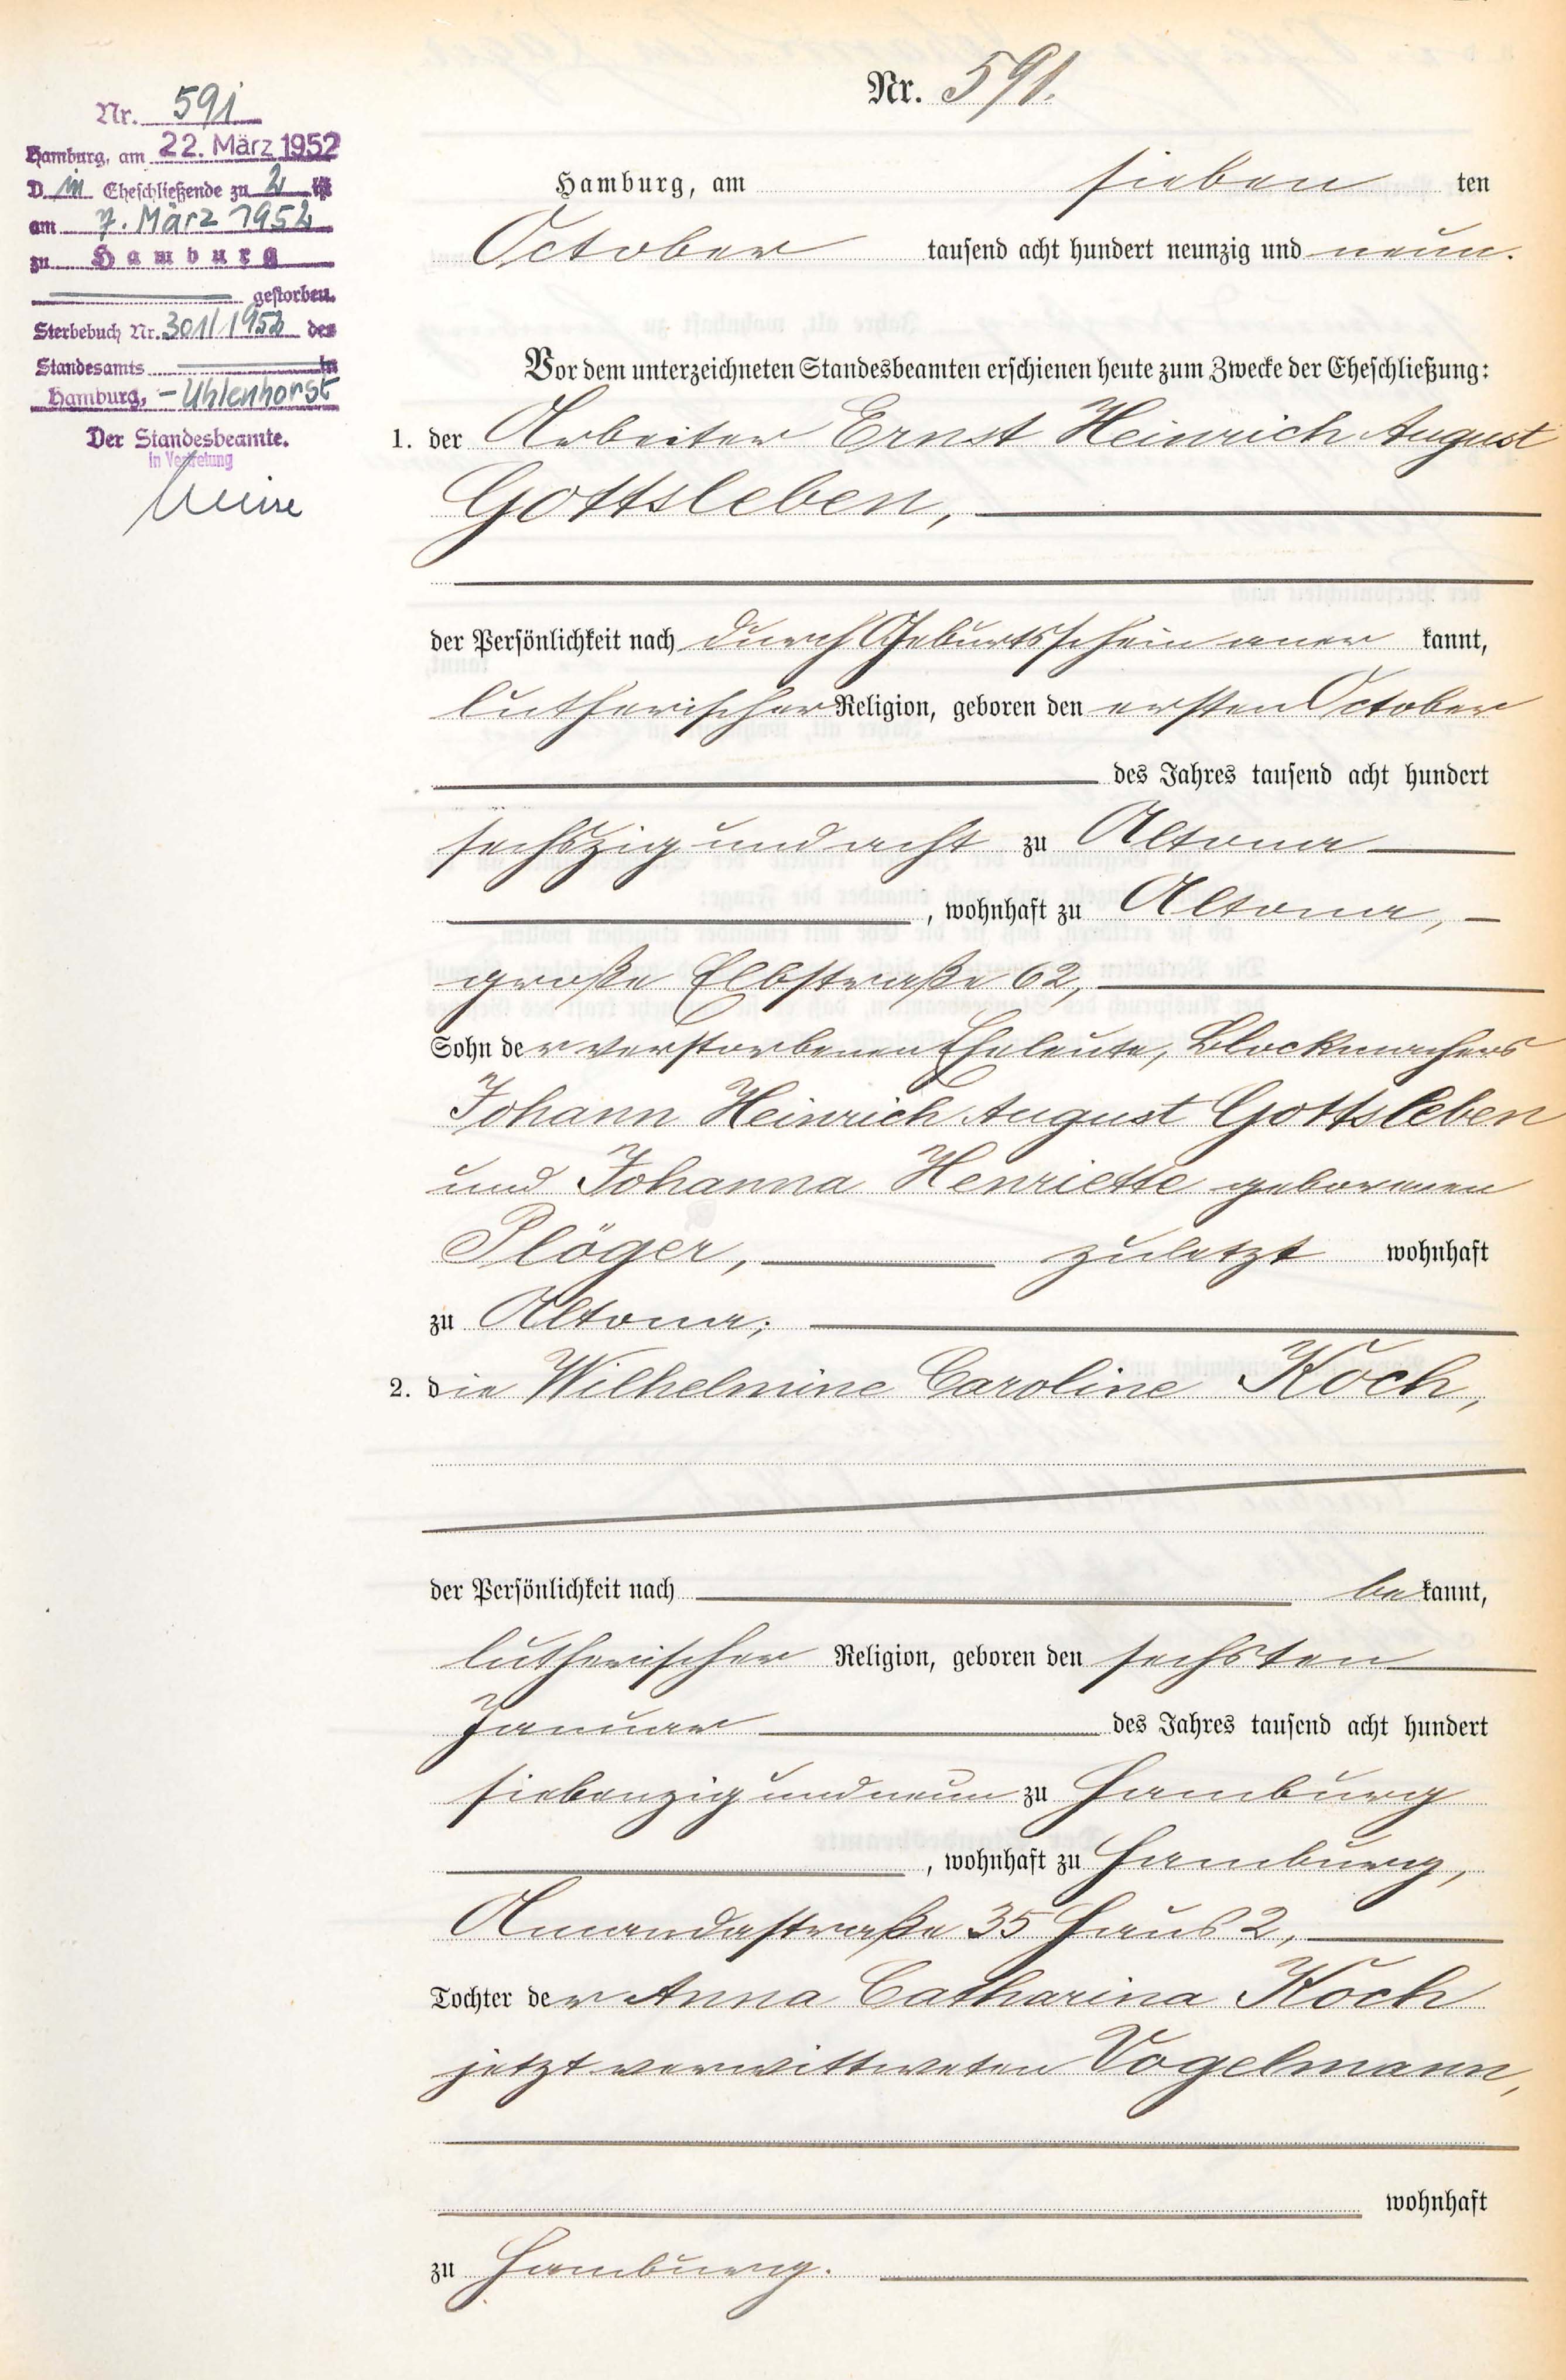 Nr. 591
Hamburg, am 22. März 1952
D in Eheschließende zu 2 ist
am 7. März 1952
zu Hamburg
gestorben.
Sterbebuch Nr. 301/1952 des
Standesamts in
Hamburg, - Uhlenhorst
Der Standesbeamte.
In Vertretung
Nr. 591.
Hamburg, am sieben ten
October tausend acht hundert neunzig und neun.
Vor dem unterzeichneten Standesbeamten erschienen heute zum Zwecke der Eheschließung:
1. der Arbeiter Ernst Heinrich August
Gottsleben,
der Persönlichkeit nach durch Geburtsschein aner kannt,
lutherischer Religion, geboren den ersten October
des Jahres tausend acht hundert
sechszig und acht zu Altona
, wohnhaft zu Altona,
große Elbstraße 62,
Sohn der verstorbenen Eheleute, Blockmachers
Johann Heinrich August Gottsleben
und Johanna Henriette geborenen
Plöger, zuletzt wohnhaft
zu Altona;
2. die Wilhelmine Caroline Koch,
der Persönlichkeit nach be kannt,
lutherischer Religion, geboren den sechsten
Januar des Jahres tausend acht hundert
siebenzig und neun zu Hamburg
, wohnhaft zu Hamburg,
Amandastraße 35 Haus 2,
Tochter der Anna Catharina Koch
jetzt verwittweten Vogelmann,
wohnhaft
zu Hamburg.